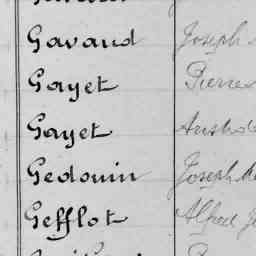 Gavaud Joseph
Gayet Pierre
Gayet
Gedouin Joseph
Gefflot Alfred